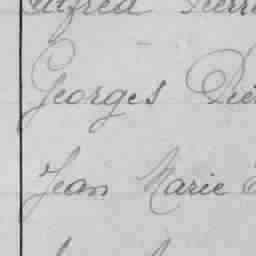 Alfred Pierre
Georges
Jean Marie